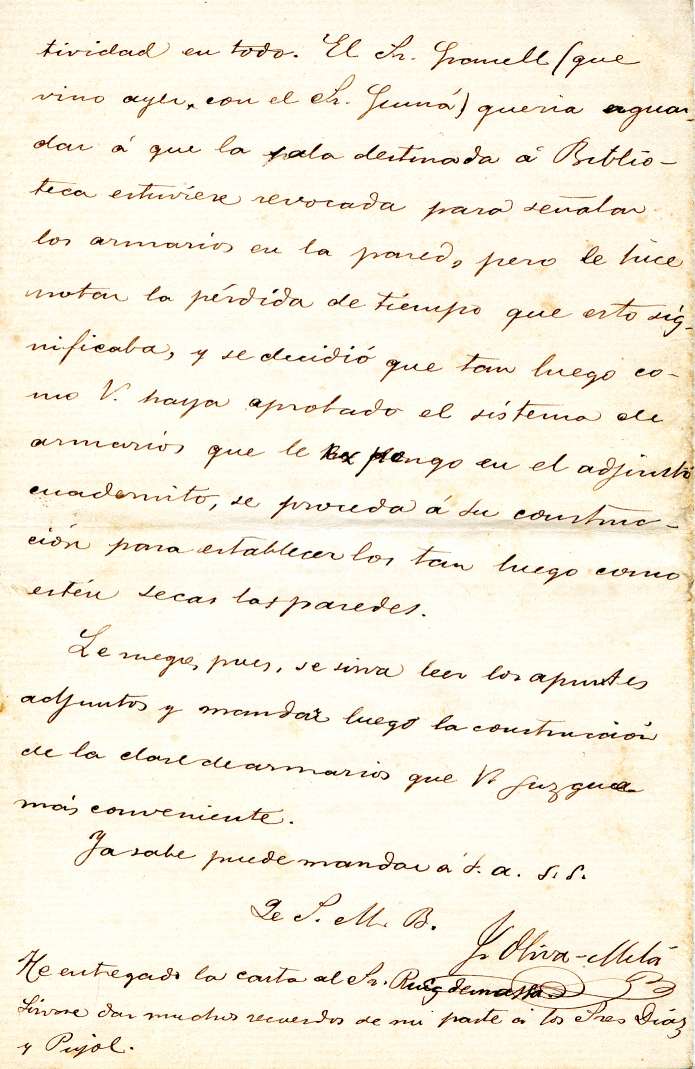 tividad en todo. El Sr. Granell (que
vino ayer, con el Sr. Gumá) queria aguar-
dar á que la sala destinada á Biblio-
teca estuviese revocada para señalar
los armarios en la pared, pero le hice
notar la pérdida de tiempo que esto sig-
nificaba, y se decidió que tan luego co-
mo V. haya aprobado el sistema de
armarios que le expongo en el adjunto
cuadernito, se proceda á su construc-
ción para establecerlos tan luego como
estén secas las paredes.
Le ruego, pues, se sirva leer los apuntes
adjuntos y mandar luego la construcción
de la clase de armarios que V. juzgue
más conveniente.
Ya sabe puede mandar á s. a. s.s.
Q e S. M. B.
J. Oliva-Milá
He entregado la carta al Sr. Ruiz
Sirvase dar muchos recuerdos de mi parte á los Sres Díaz
y Pujol.